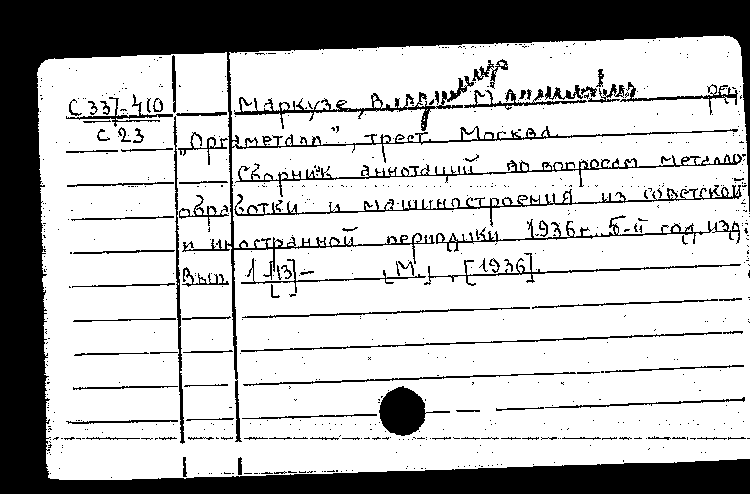 С 337-410 Маркузе, Владимир М. ред
С 23
„Оргаметалл”, трест. Москва.
Сборник аннотаций по вопросам металло
обработки и машиностроения из советской
и иностранной периодики 1936г. 5-й год изд.
Вып. 1-[13]- [М.], [1936].